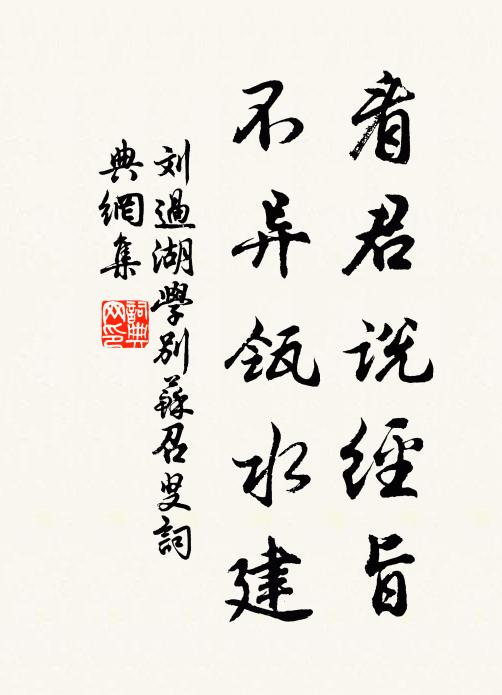 看君说經旨
不异瓴水建
刘過湖學别蘇召叟詞
典網集
詞典
网印